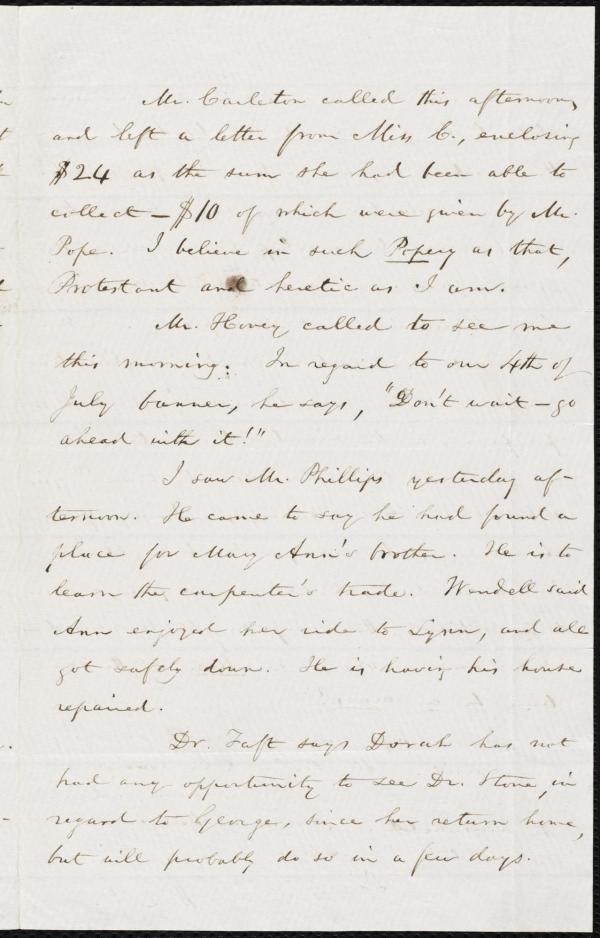 Mr. Carleton called this afternoon,
and left a letter from Miss C., enclosing
$24 as the sum she had been able to
collect — $10 of which were given by Mr.
Pope. I believe in such Popery as that,
Protestant and heretic as I am.
Mr. Hovey called to see me
this morning. In regard to our 4th of
July banner, he says, "Don't wait — go
ahead with it!"
I saw Mr. Phillips yesterday af-
ternoon. He came to say he had found a
place for Mary Ann's brother. He is to
learn the carpenter's trade. Wendell said
Ann enjoyed her ride to Lynn, and all
got safely down. He is having his house
repaired.
Dr. Taft says Dorah has not
had any opportunity to see Dr. Stone, in
regard to George, since her return home,
but will probably do so in a few days.